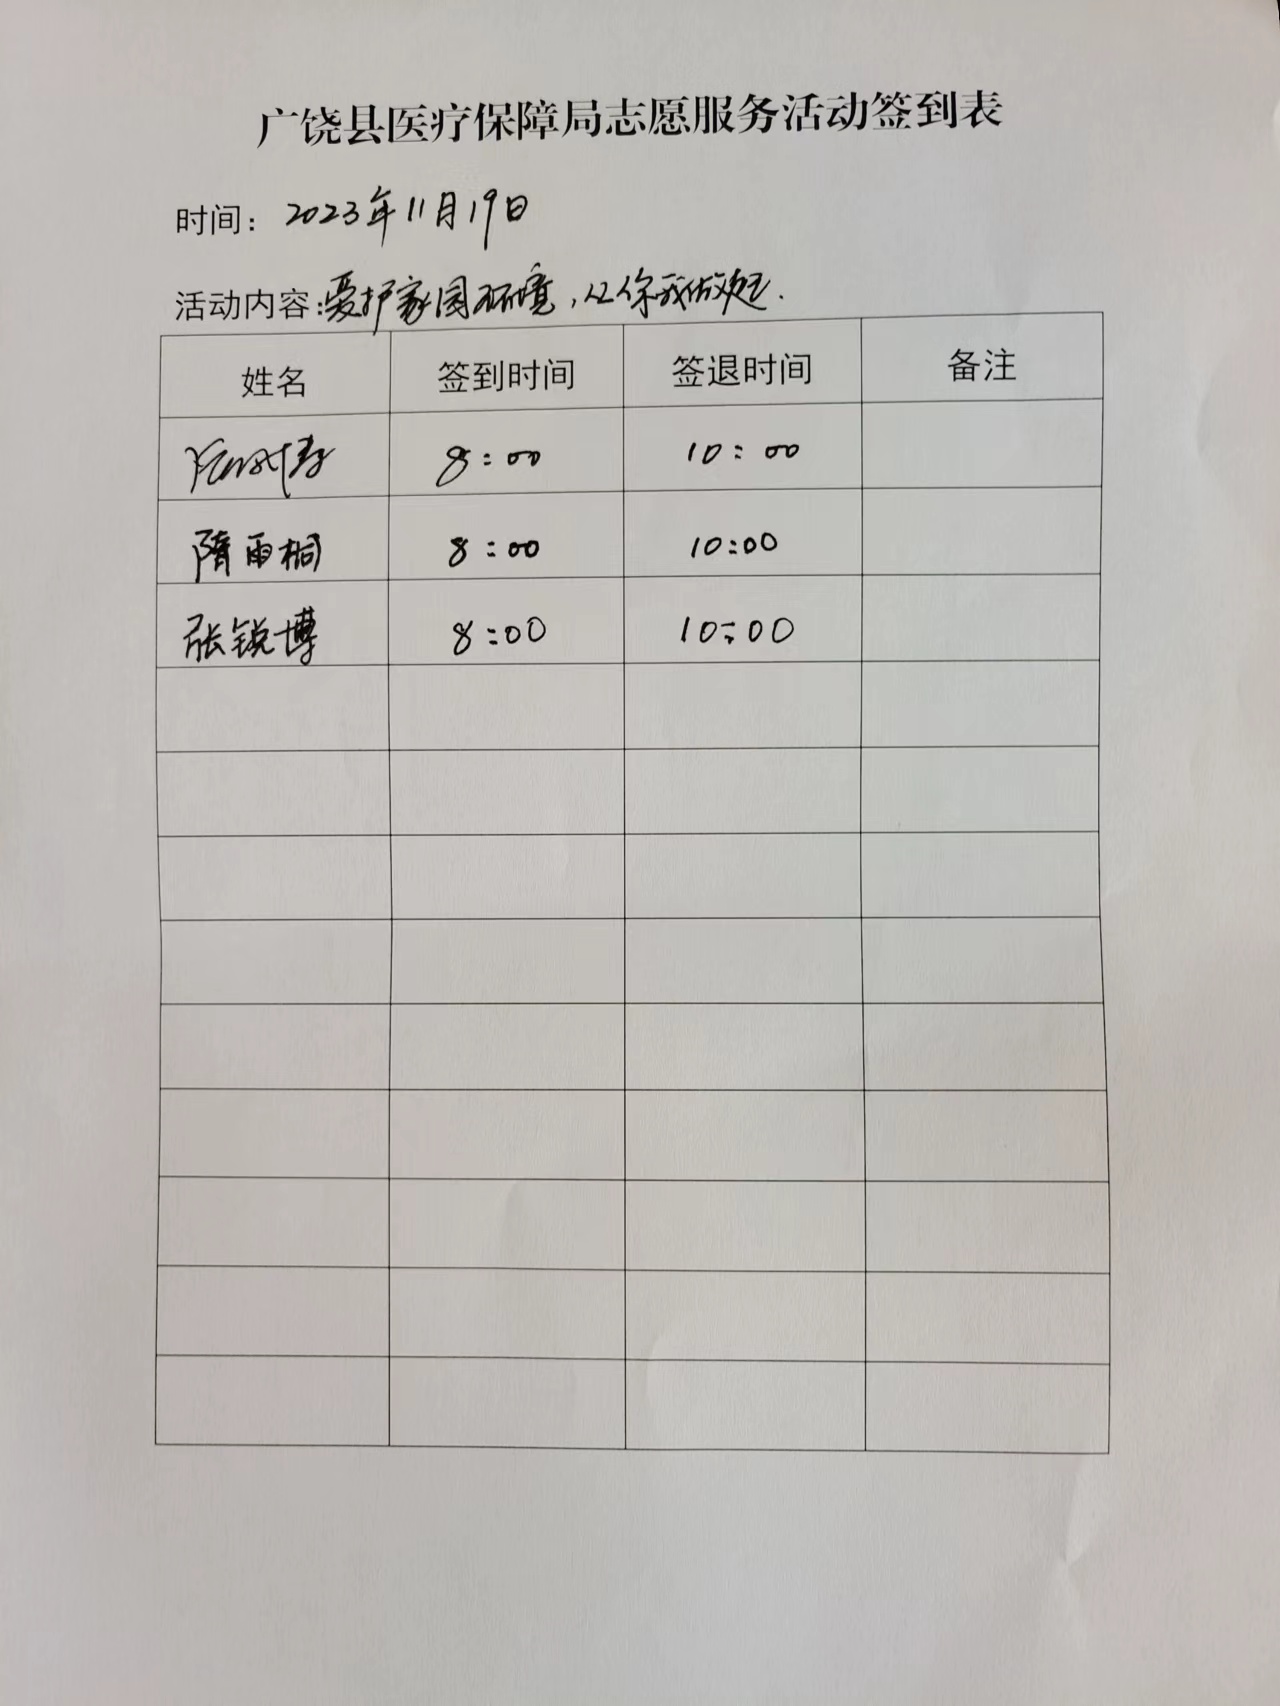 广饶县医疗保障局志愿服务活动签到表
时间：2023年11月19日
活动内容：爱护家园环境，从你我做起.
姓名 签到时间 签退时间 备注
8:00 10:00
隋雨桐 8:00 10:00
张锐博 8:00 10:00